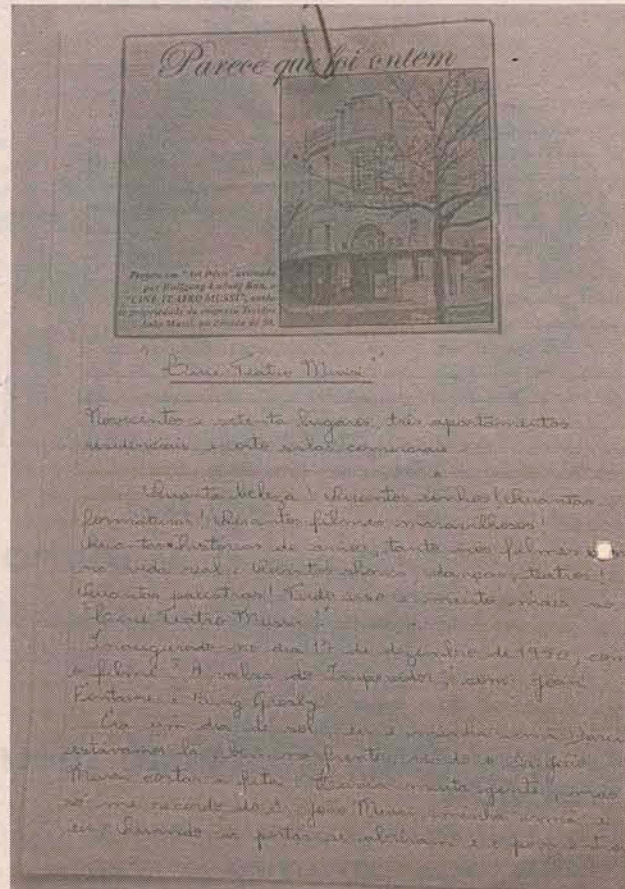 Parece que foi ontem
Projeto em "Art Déco" assinado
por Wolfgang Ludwig Rau, o
"CINE TEATRO MUSSI", 
propriedade da empresa
João Mussi, na década de 50.
"Cine Teatro Mussi"
Novecentos e setenta lugares, três apartamentos
residenciais e oito salas comerciais.
Quanta beleza! Quantos sonhos! Quantas
formaturas! Quantos filmes maravilhosos!
Quantas histórias de amor, tanto nos filmes
na vida real. Quantos shows, danças, teatros!
Quantas palestras! Tudo isso e muito mais no
"Cine Teatro Mussi!"
Inaugurado no dia 17 de dezembro de 1950, com
o filme "A valsa do Imperador", com Joan
Fontaine e Bing Grosby.
Era um dia de sol, eu e minha irmã Darci
estávamos lá bem na frente, vendo o Sr. João
Mussi cortar a fita. Havia muita gente, porém
só me recordo do Sr. João Mussi, minha irmã e
eu. Quando as portas se abriram e o povo entrou